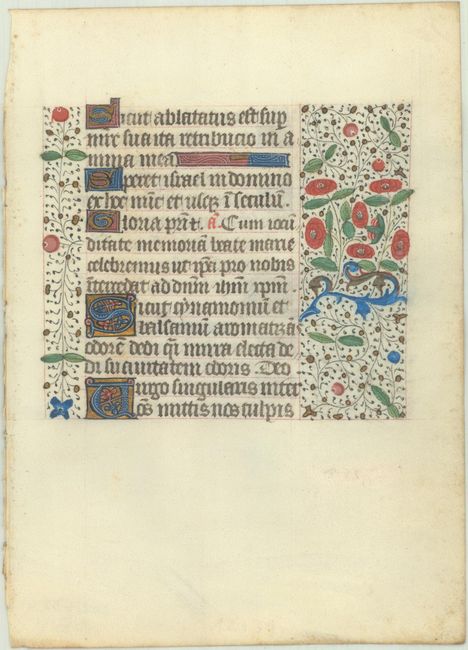 Sicut ablatatus est sup
mře sua ita retribucio in a
nima mea
Speret israel in domino
ex hoc nūc et usqȝ ī seculū.
Gloria pr̄i ⁊. a͞. Cum iocū
ditate memoriā beate marie
celebremus ut ip̄a pro nobis
ītercedat ad dn̄m ihm̄ xp̄m
Sicut cynamomū et
balsamū aromatiza
odorē dedi q̄i mirra electa de
di suavitatem odoris. Deo
Uirgo singularis inter
oēs mittis nos culpis